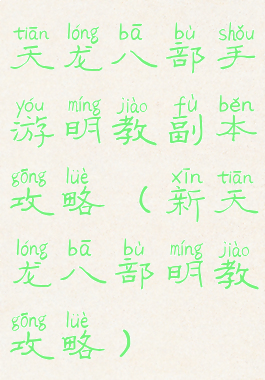 tiān lóng bā bù shǒu
天龙八部手
yóu míng jiào fù běn
游明教副本
gōng lüè xīn tiān
攻略（新天
lóng bā bù míng jiào
龙八部明教
gōng lüè
攻略）